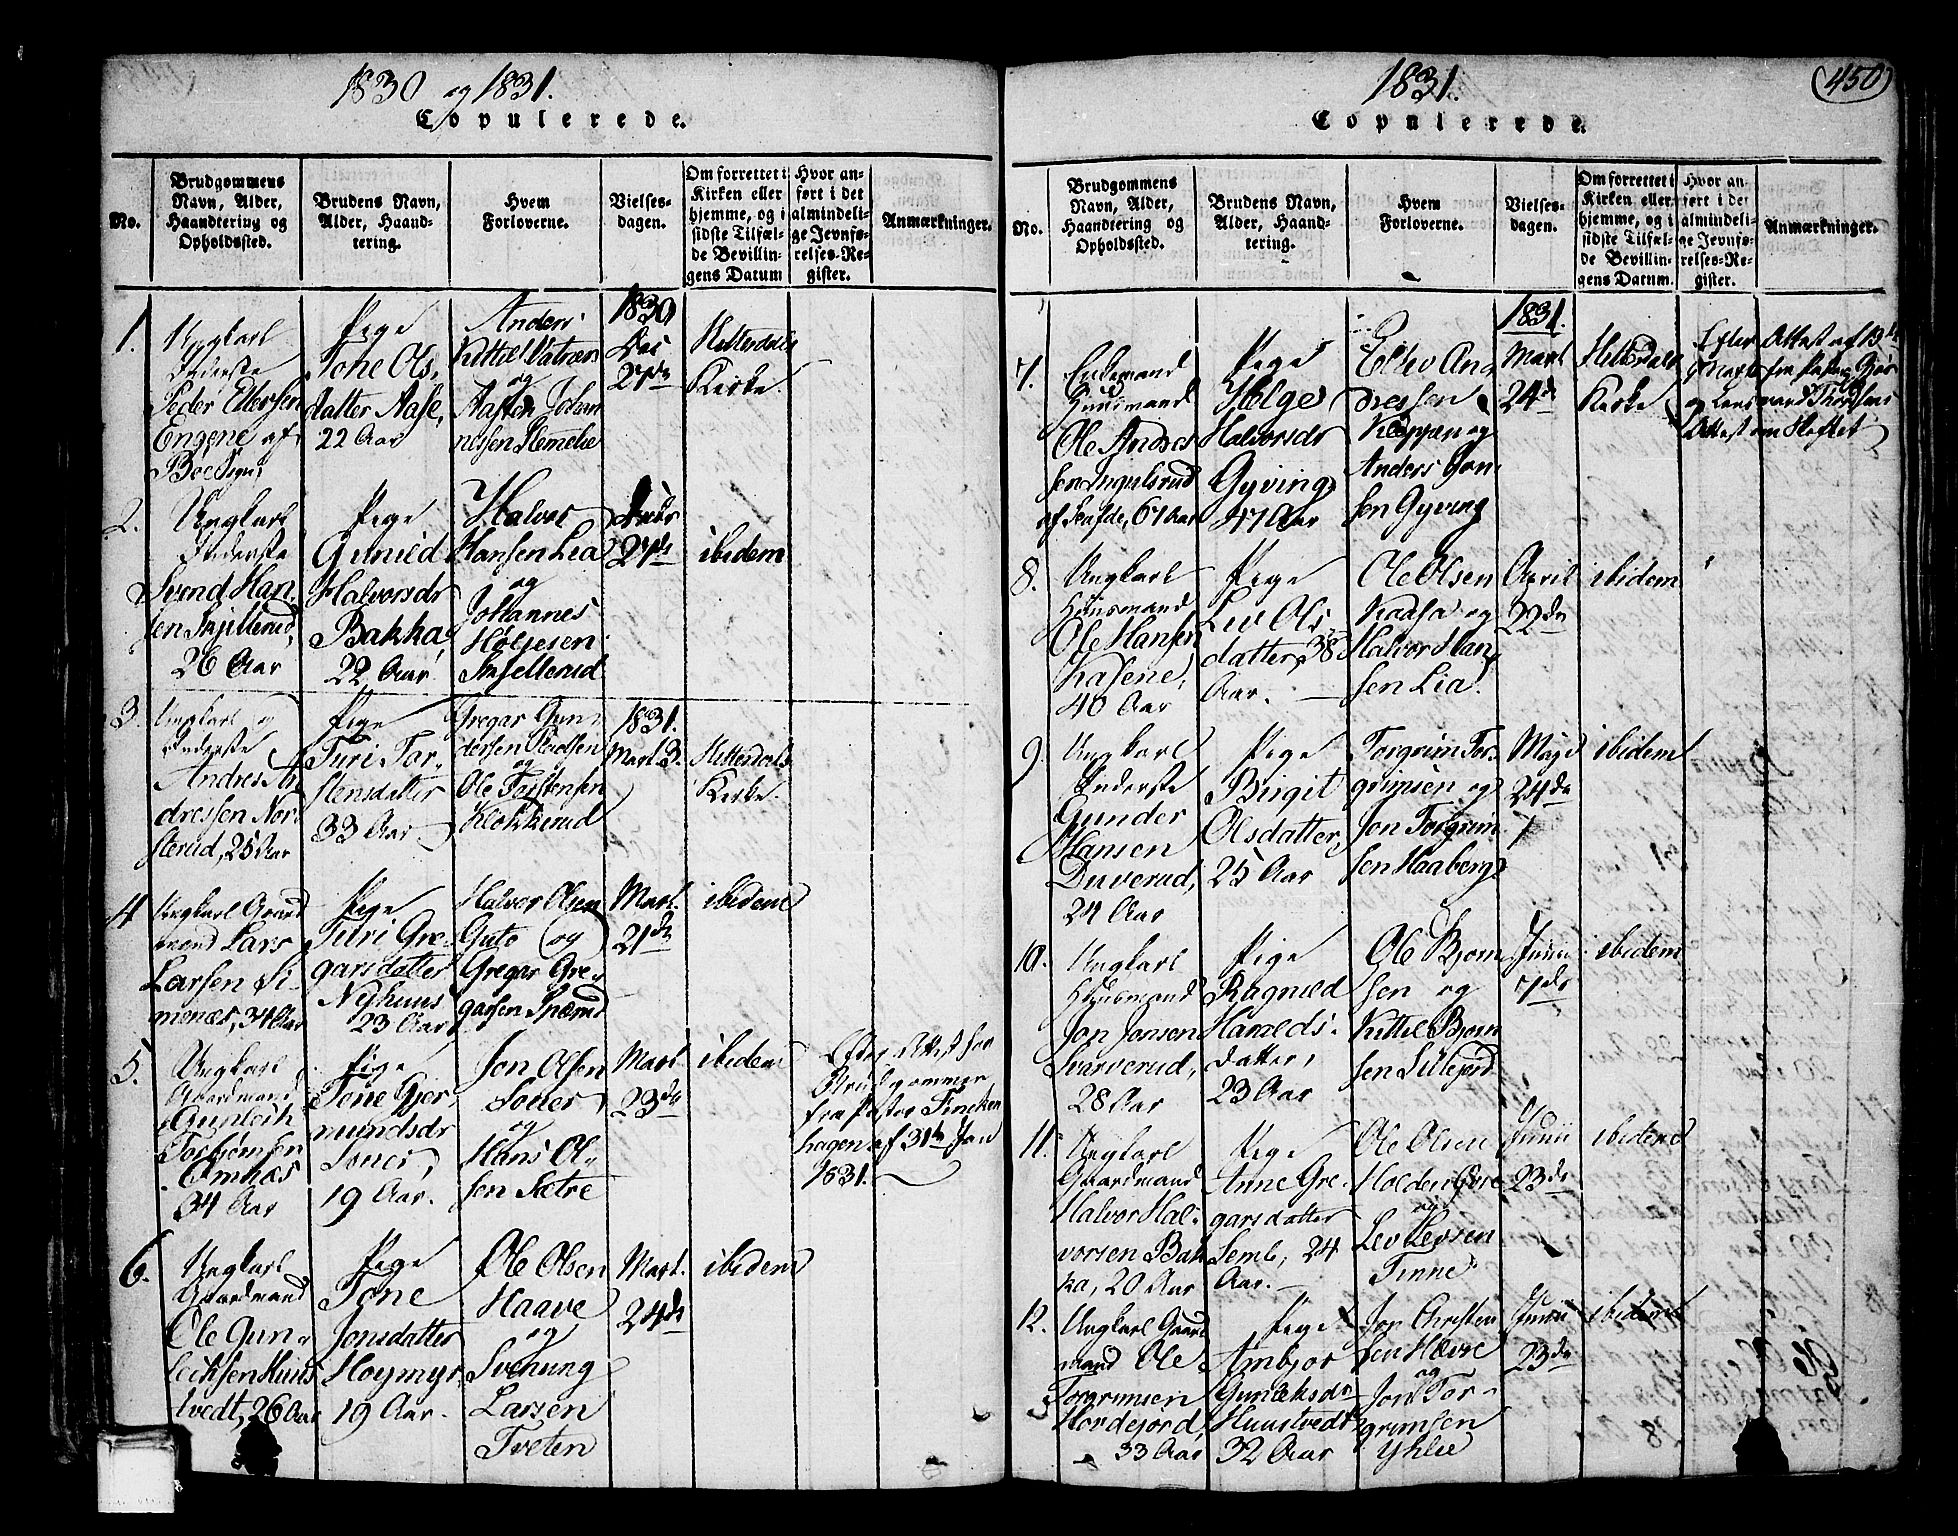 1830 og 1831.
Copulerede.
No.
Brudgommens
Navn, Alder,
Haandtering og
Opholdssted.
Brudens Navn,
Alder, Haand-
tering.
Hvem
Forloverne.
Vielses-
dagen.
Om forrettet i
Kirken eller
hjemme, og i
sidste Tilfæl-
de Bevillin-
gens Datum
Hvor an-
ført i det
almindeli-
ge Jevnfø-
relses-Re-
gister.
Anmærkninger.
1.
Ungkarl
Inderste
Peder Ellefsen
Engene af
Bøe Sogn,
Pige
Tone Ols-
datter Aase,
22 Aar
Anders
Kittils
og
Aasten Johan
nessen
1830
Dec
27de
Hitterdals
Kirke.
2.
Ungkarl
Inderste
Svend Han-
sen Skjellerud,
26 Aar
Pige
Gunild
Halvorsdr
Bakka,
22 Aar
Halvor
Hansen Lia
og
Johannes
Høljesen
Skjellerud
27de
ibidem
3.
Ungkarl og
Inderste
Andres An
dressen Nor
sterud, 25 Aar
Pige
Turi Tor-
stensdatter
33 Aar.
Gregar Gun-
dersen
og
Ole Torstensen
Klokkerud
1831.
Mart. 3.
Hitterdals
Kirke.
4
Ungkarl Gaard
mand Lars
Larsen Si-
menæs, 34 Aar
Pige
Turi Gre-
garsdatter
Nyhuus
23 Aar
Halvor Olsen
Guto og
Gregar Gre-
garsen
Mart.
21de
ibidem
5.
Ungkarl
Gaardmand
Gunleik
Torbjørnsen
Omnæs
34 Aar
Pige
Tone Gjer-
mundsdr
19 Aar.
Jon Olsen
og
Hans Ol-
sen Sætre
Mart.
23de
ibidem
Efter Attest for
Brudgommen
fra Pastor Fincken
hagen af 31te Jan
1831.
6.
Ungkarl
Gaardmand
Ole Gun-
leiksen Huus
tvedt, 26 Aar
Pige
Tone
Jonsdatter
Høymyr,
19 Aar.
Ole Olsen
Haave
og
Svenung
Larsen
Tveten
Mart.
24de
ibidem
1831.
450
Copulerede.
No.
Brudgommens
Navn, Alder,
Haandtering og
Opholdssted.
Brudens Navn,
Alder, Haand-
tering.
Hvem
Forloverne.
Vielses-
dagen.
Om forrettet i
Kirken eller
hjemme, og i
sidste Tilfæl-
de Bevillin-
gens Datum.
Hvor an-
ført i det
almindeli-
ge Jevnfø-
relses-Re-
gister.
Anmærkninger.
7.
Enkemand
Huusmand
Ole Andres
sen Ingulsrud
af 67 Aar
Pige
Helge
Halvorsdr
Gyving
47 Aar
Ellev An
dressen
Kleppen og
Anders Jon-
sen Gyving
1831.
Mart
24de
Hitterdals
Kirke
Efter Attest af 13de
Marts fra Pastor
og Lensmand
Attest om Skiftet
8.
Ungkarl
Huusmand
Ole Hansen
Kasene,
40 Aar
Pige
Liv Ols-
datter, 38
Aar.
Ole Olsen
Kaasa og
Halvor Han
sen Lia.
April
22de
ibidem
9.
Ungkarl
Inderste
Gunder
Hansen
Duverud,
24 Aar
Pige
Birgit
Olsdatter,
25 Aar
Torgrim Tor-
grimsen og
Jon Torgrim
sen Haaberg
Maje
24de
ibidem
10.
Ungkarl
Huusmand
Jon Jonsen
Svarverud,
28 Aar
Pige
Ragnild
Haralds-
datter,
23 Aar
Ole Bjørn
sen og
Kittil Bjørn
sen Lillejord
Junii
7de
ibidem
11.
Ungkarl
Gaardmand
Halvor Hal-
vorsen Bak
ka, 20 Aar
Pige
Anne Gre-
garsdatter
Semb, 24
Aar.
Ole Olsen
og
Lev Levsen
Tinne
Junii
23de
ibidem
12.
Ungkarl Gaard
mand Ole
Torgrimsen
Hordejord,
33 Aar
Pige
Ambjør
Gunleksdr
Huustvedt
32 Aar
Jon Christen
sen Hævre
og
Jon Tor-
grimsen
Yhlie
Junii
23de
ibidem